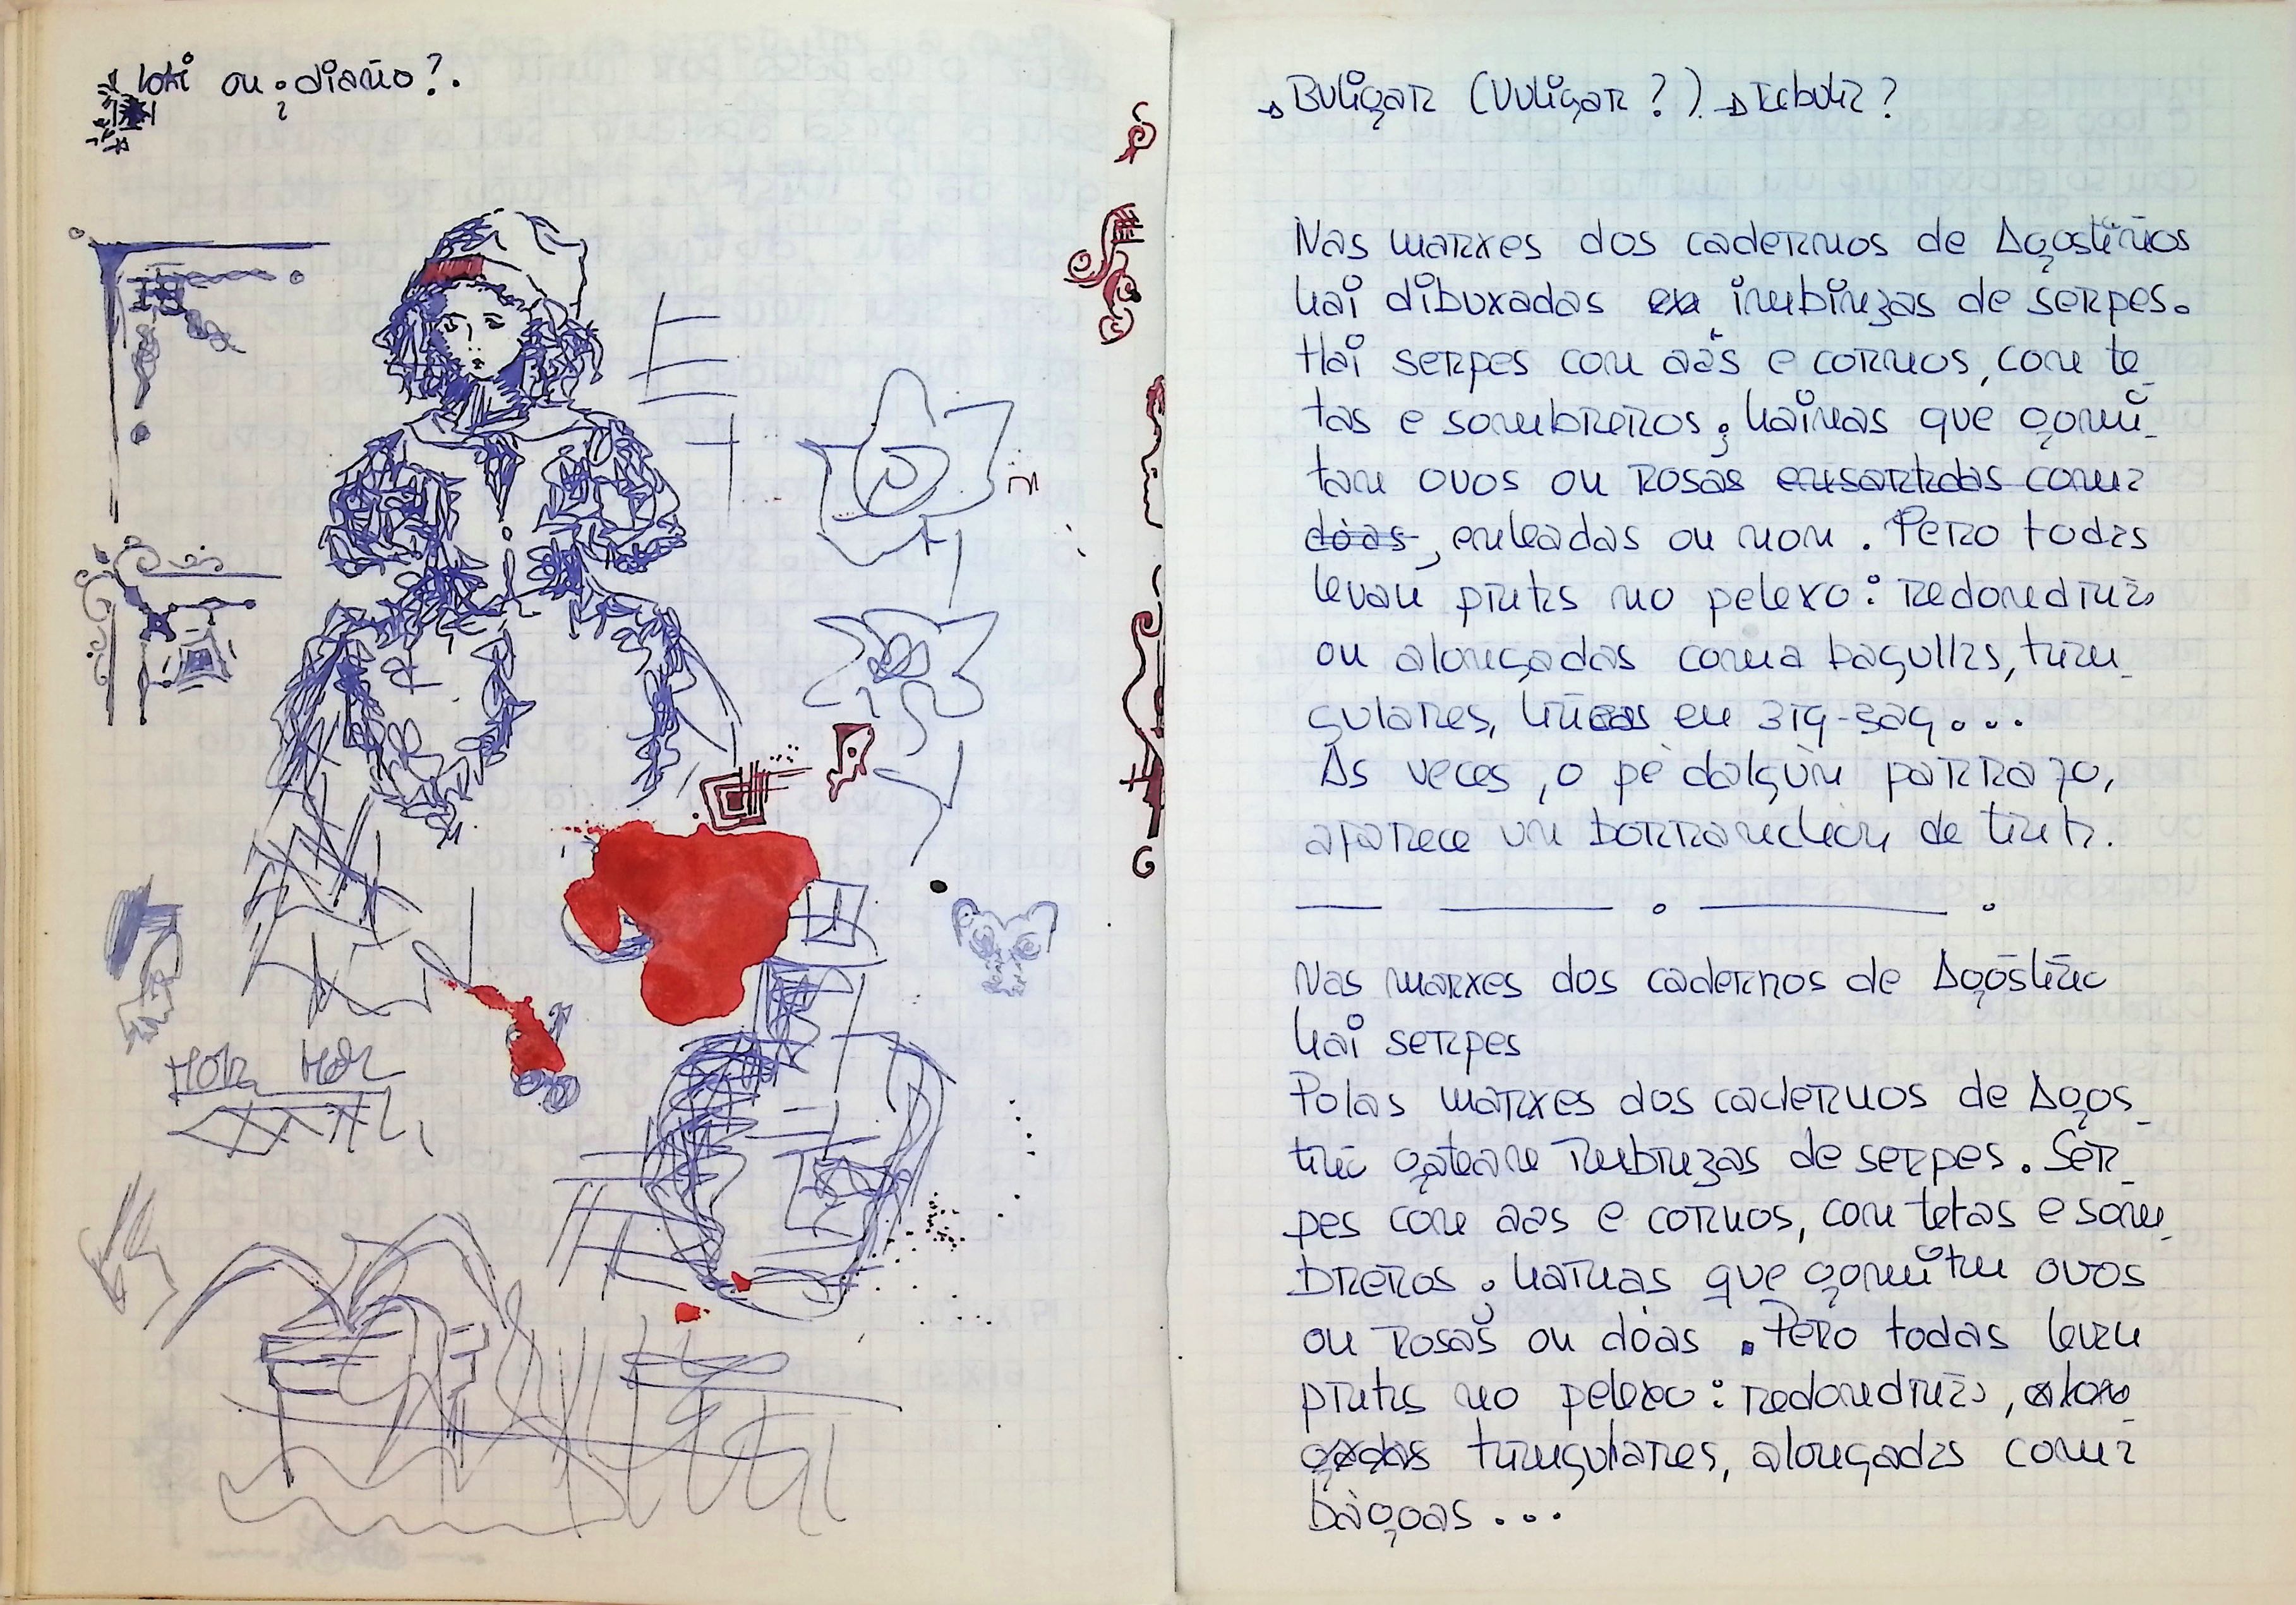 loki ou ¿diaño?.
→ Buligar (Vuligar?). → Rebulir?
Nas marxes dos cadernos de Agostiños
hai dibuxadas de serpes.
Hai serpes con aás e cornos, con te-
tas e sombreros; hainas que gomi-
tan ovos ou rosas ensartadas coma
doas, enleadas ou non. Pero todas
levan pintas no pelexo: redondiñas
ou alongadas coma bagullas, trian-
gulares, liñas en zig-zag...
Ás veces, o pé dalgún parrazo,
aparece un borranchón de tinta.
Nas marxes dos cadernos de Agóstiño
hai serpes
Polas marxes dos cadernos de Agos-
tiño gatean de serpes. Ser-
pes con aas e cornos, con tetas e som-
breros; hainas que gomitan ovos
ou rosas ou dóas. Pero todas levan
pintas no pelexo: redondiñas, alon-
gadas triangulares, alongadas coma
bágoas...